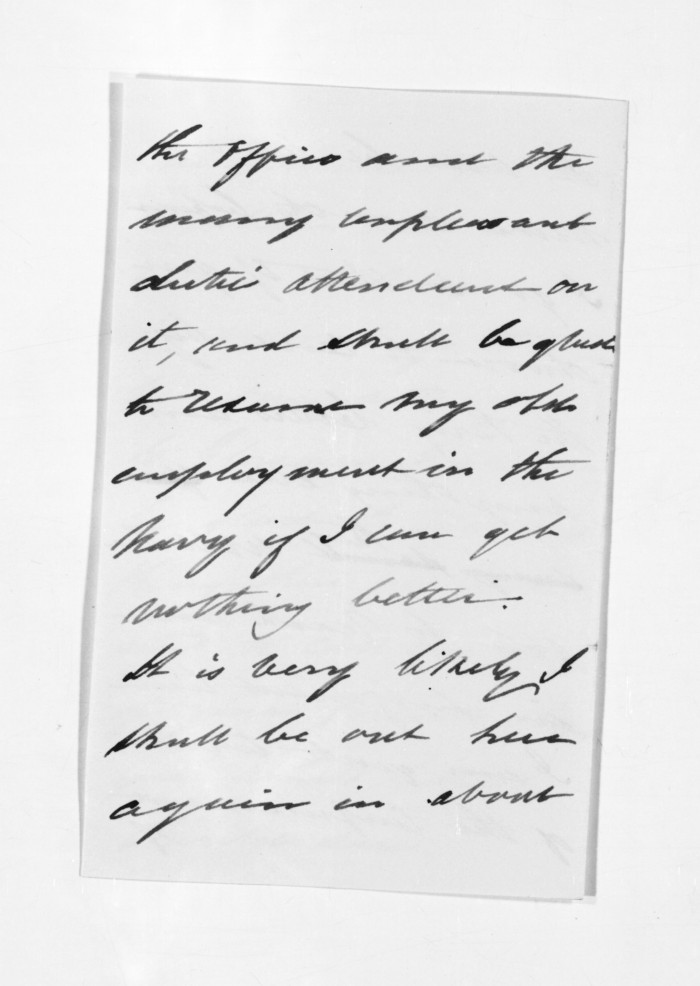 the office and the
many unpleasant
duties attendant on
it, and shall be glad
to resume my old
employment in the
Navy if I can get
nothing better.
It is very likely I
shall be out here
again in about